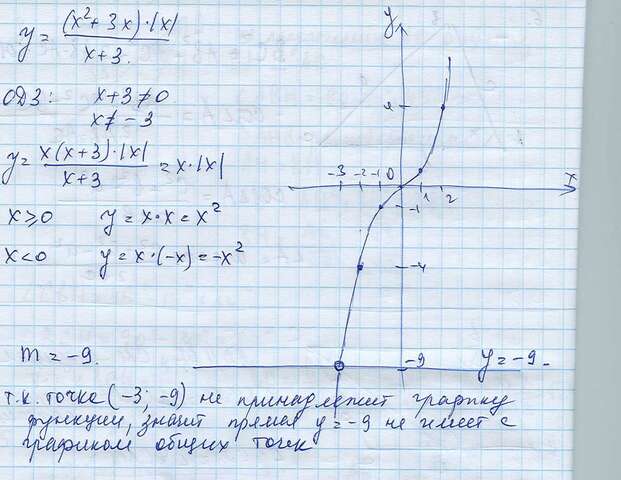 y = (x² + 3x)·|x| / x+3.
ОДЗ: x+3 ≠ 0
x ≠ -3
y = x(x+3)·|x| / x+3 = x·|x|
x ≥ 0 y = x·x = x²
x < 0 y = x·(-x) = -x²
m = -9.
т.к. точка (-3; -9) не принадлежит графику
функции, значит прямая y = -9 не имеет с
графиком общих точек
y
4
-3 -2 -1 0 x
1 2
-1
-4
-9 y = -9.